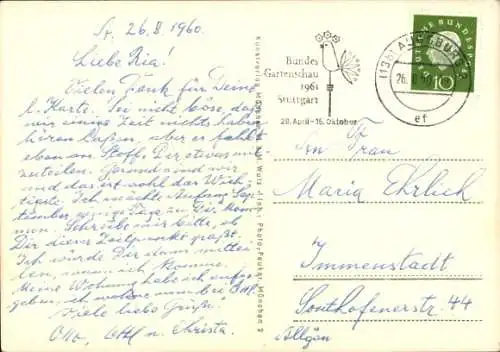 St. 26.8.1960.
Liebe Ria!
Vielen Dank für Deine
l. Karte. Sei nicht böse, daß
wir einige Zeit nichts haben
hören laßen, aber es fehlt
eben an Stoff, Dir etwas mit-
zuteilen. Gesund sind wir
und das ist wohl das Wich-
tigste. Ich möchte Anfang Sep-
tember einige Tage zu Dir kom-
men. Schreibe mir bitte, ob
Dir dieser Zeitpunkt paßt.
Ich würde Dir dann mittei-
len, wann ich komme.
Meine Wohnung habe ich aufge-
geben, ich wohne nun bei
Viele liebe Grüße
Otto, u. Christa
Kunstverlag
München 2
Bundes
Gartenschau
1961
Stuttgart
28. April-15. Oktober
(13b)
26.8.
ef
DEUTSCHE BUNDESPOST
10
Frau
Maria Ehrlich
Immenstadt
Sonthofenerstr. 44
Allgäu